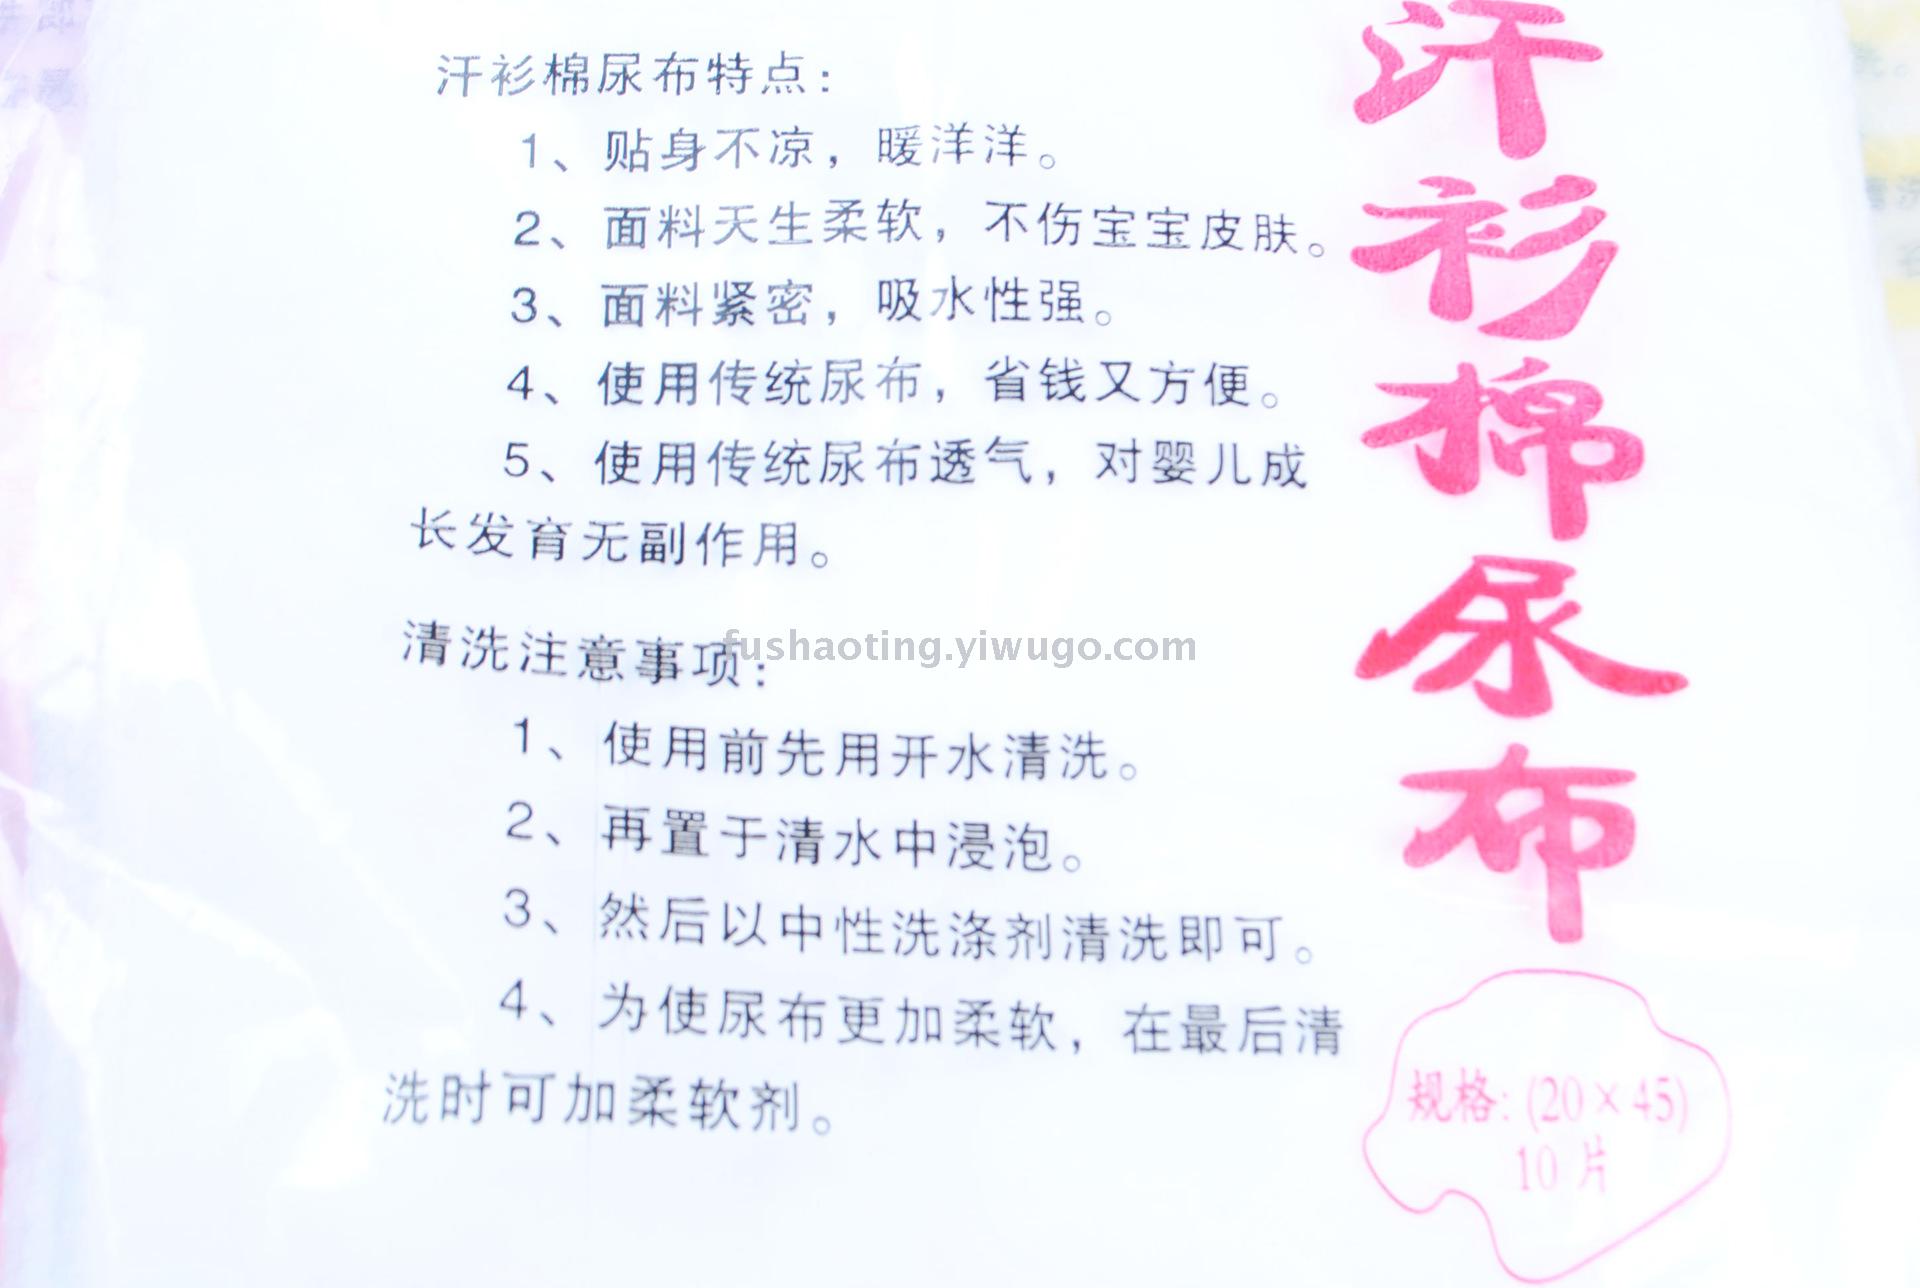 汗衫棉尿布特点:
1、贴身不凉，暖洋洋。
2、面料天生柔软，不伤宝宝皮肤。
3、面料紧密，吸水性强。
4、使用传统尿布，省钱又方便。
5、使用传统尿布透气，对婴儿成
长发育无副作用。
清洗注意事项:
1、使用前先用开水清洗。
2、再置于清水中浸泡。
3、然后以中性洗涤剂清洗即可。
4、为使尿布更加柔软，在最后清
洗时可加柔软剂。
汗衫棉尿布
规格: (20×45)
10片
fushaoting.yiwugo.com